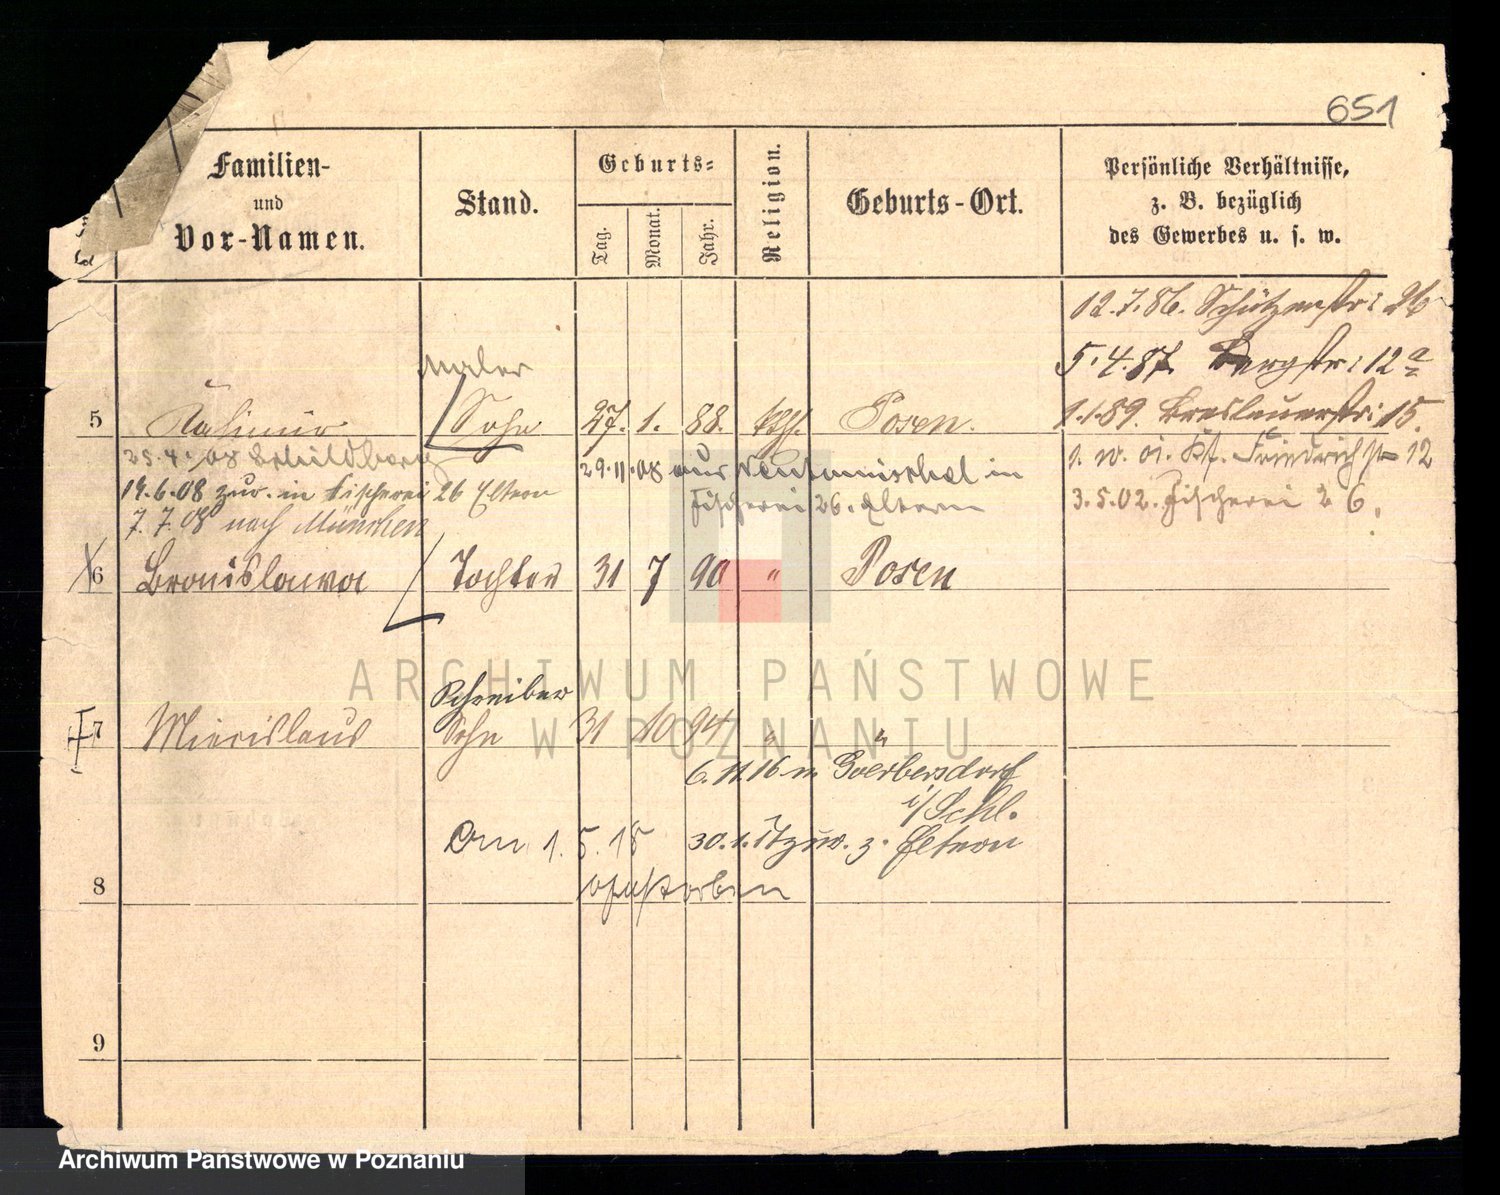 651
Familien-
und
Vor-Namen.
Stand.
Geburts-
Tag.
Monat.
Jahr.
Religion.
Geburts-Ort.
Persönliche Verhältnisse,
z. B. bezüglich
des Gewerbes u. s. w.
12.7.86. Schützenstr: 26
5.4.87. Bergstr: 12a
1.1.89. Breslauerstr: 15.
Friedrichstr 12
3.5.02. Fischerei 26.
Maler
5 Kasimir Sohn 27. 1. 88. kath. Posen.
25.4./08 Schildberg
19.6.08 zur. in Fischerei 26 Eltern
7.7.08 nach München
29.11.08 aus Neutomischel in
Fischerei 26. Eltern
6 Bronislawa Tochter 31 7 90 " Posen
Schreiber
7 Miecislaus Sohn 31 10 94 " "
6.11.16 n. Goerbersdorf
i/Schl.
30.1.17 zur. z. Eltern
Am 1.5.18
verstorben
8
9
ARCHIWUM PAŃSTWOWE
W POZNANIU
Archiwum Państwowe w Poznaniu